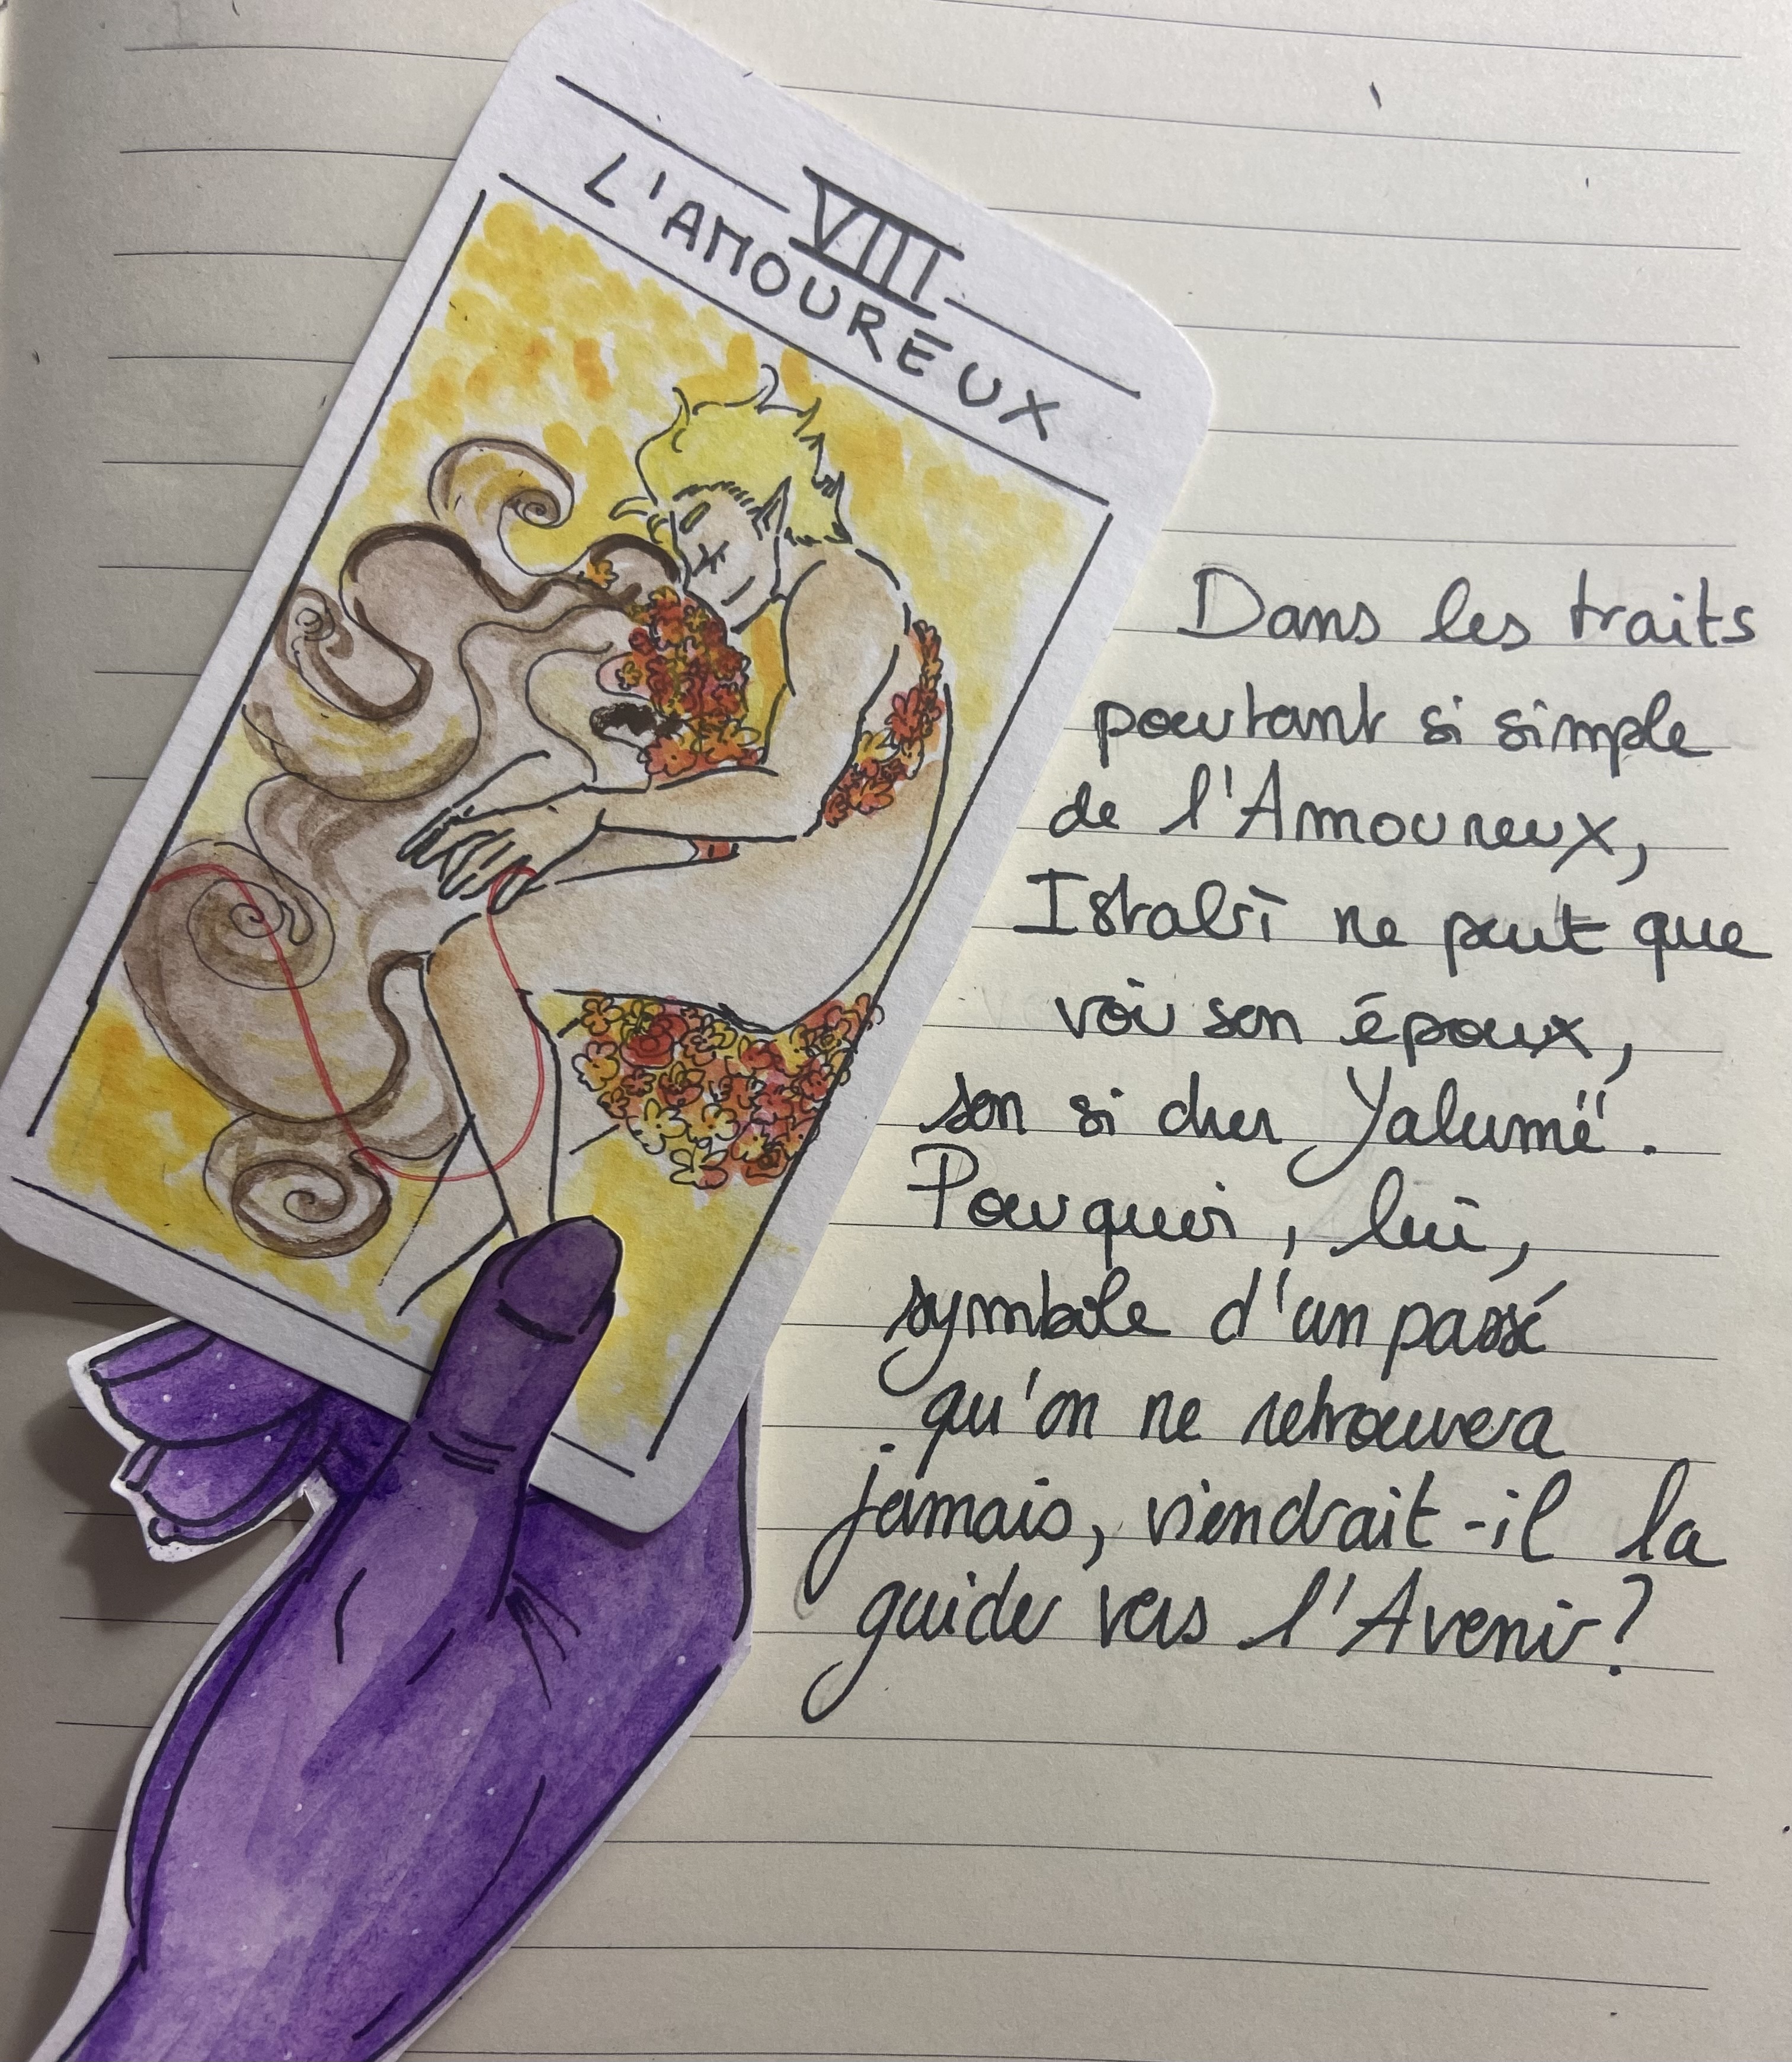 VIII
L'AMOUREUX
Dans les traits
pourtant si simple
de l'Amoureux,
Istalrì ne peut que
voir son époux,
son si cher Yalumë.
Pourquoi, lui,
symbole d'un passé
qu'on ne retrouvera
jamais, viendrait-il la
guider vers l'Avenir?